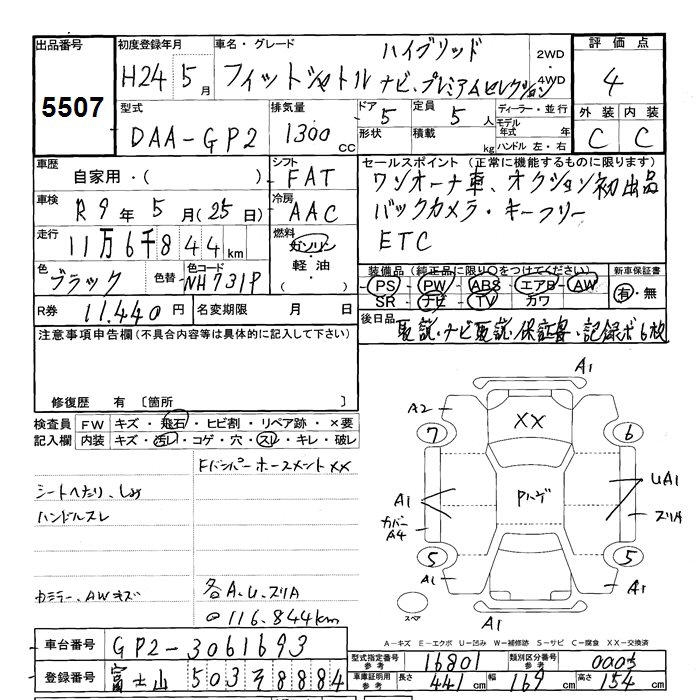 出品番号 5507
初度登録年月 H24 5月
車名・グレード フィットシャトル ハイブリッド ナビ・プレミアムセレクション
2WD
4WD
評価点 4
外装 内装
C C
型式 DAA-GP2
排気量 1300 cc
ドア 5 形状
定員 5 人 積載 kg
ディーラー・並行
モデル年式 年
ハンドル 左・右
車歴 自家用・( )
シフト FAT
車検 R9年5月(25日)
冷房 AAC
走行 11万6千844km
燃料 ガソリン 軽油 ・( )
色 ブラック 色替 色コード NH731P
R券 11,440円 名変期限 月 日
セールスポイント(正常に機能するものに限ります)
ワンオーナ車、オクション初出品
バックカメラ・キーフリー
ETC
装備品(純正品に限り○をつけてください)
PS・PW・ABS・エアB・AW
SR・ナビ・TV・カワ
新車保証書 有・無
後日品 取説・ナビ取説・保証書・記録ボ6枚
注意事項申告欄(不具合内容等は具体的に記入して下さい)
修復歴 有 〔箇所
検査員記入欄 FW キズ・飛石・ヒビ割・リペア跡・×要
内装 キズ・汚レ・コゲ・穴・スレ・キレ・破レ
FバンパーホースメントXX
シートへたり、しみ
ハンドルスレ
カミラー、AWキズ
各A.U.スリA
116.844km
A1
A2
XX
7
6
Pハゲ
A1
カバー
A4
UA1
スリA
5
5
A1
A1
スペア
A1
A-キズ E-エクボ U-凹み W-補修跡 S-サビ C-腐食 XX-交換済
車台番号 GP2-3061693
登録番号 富士山 503 そ 8884
型式指定番号 参考 16801 類別区分番号 参考 0005
車庫証明用 参考 長さ 441cm 幅 169cm 高さ 154cm